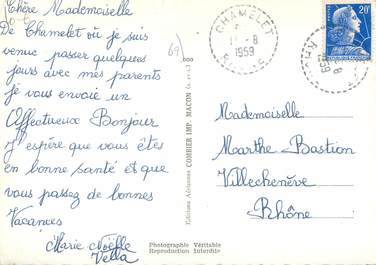 Chère Mademoiselle
De Chamelet où je suis
venue passer quelques
jours avec mes parents
je vous envoie un
Affectueux Bonjour
J'espère que vous êtes
en bonne santé et que
vous passez de bonnes
Vacances
Marie Noëlle
Vella
69
Editions Aériennes COMBIER IMP. MACON (S.-et-L.)
Photographie Véritable
Reproduction Interdite
CHAMELET
-8
1959
20F
Mademoiselle
Marthe Bastion
Villechenève
Rhône